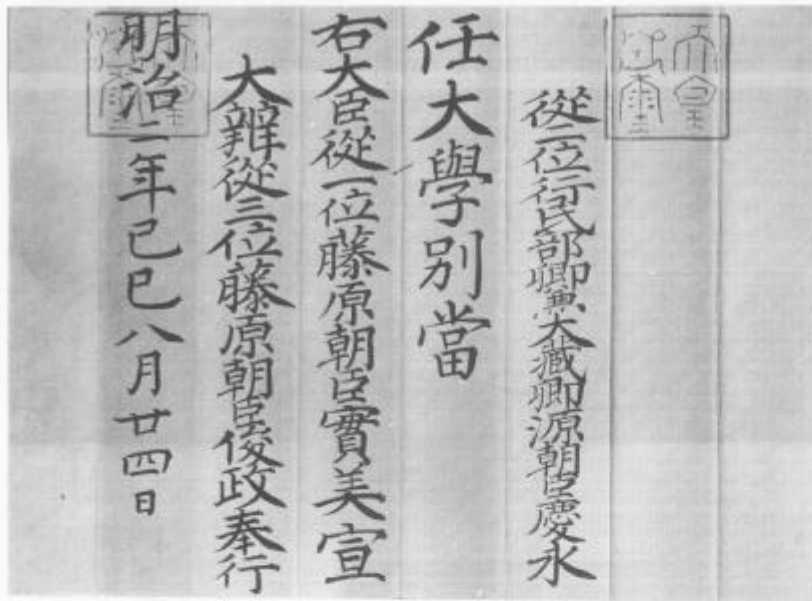 從二位行民部卿兼大藏卿源朝臣慶永
任大學別當
右大臣從一位藤原朝臣實美宣
大辨從三位藤原朝臣俊政奉行
明治二年己巳八月廿四日